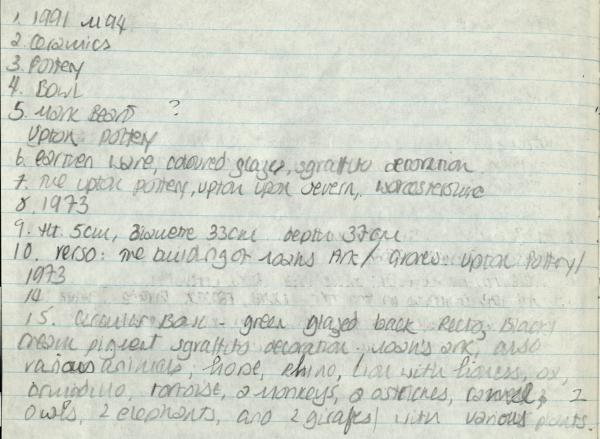 1. 1991 M94
2. Ceramics
3. Pottery
4. Bowl
5. Mark Beard ?
Upton Pottery
6. earthen ware, coloured glazes, sgraffito decoration
7. The Upton Pottery, Upton upon Severn, Worcestershire
8. 1973
9. Ht. 5cm, Diametre 33cm depth 37cm
10. Verso: The building of Noahs Ark / Upton Pottery /
1973
14
15. Circular Bowl - green glazed back Recto: Black /
cream pigment sgraffito decoration. Noah's ark, and
various animals, horse, rhino, lion with lioness, ox,
armadillo, tortoise, 2 monkeys, 2 ostriches, camels, 2
owls, 2 elephants, and 2 girafes / with various plants.